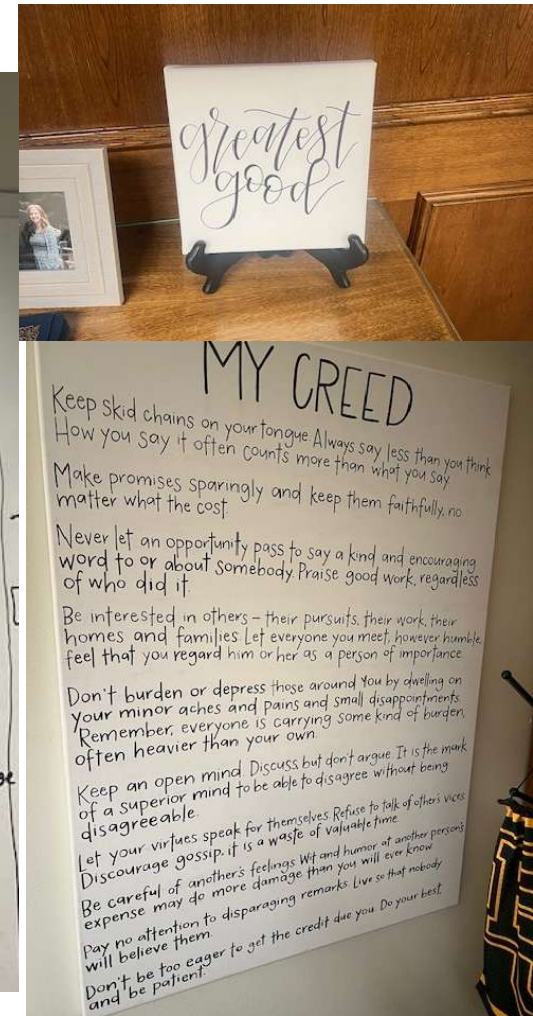 greatest
good
MY CREED
Keep skid chains on your tongue. Always say less than you think.
How you say it often counts more than what you say.
Make promises sparingly and keep them faithfully, no
matter what the cost.
Never let an opportunity pass to say a kind and encouraging
word to or about somebody. Praise good work, regardless
of who did it.
Be interested in others - their pursuits, their work, their
homes and families. Let everyone you meet, however humble,
feel that you regard him or her as a person of importance
Don't burden or depress those around you by dwelling on
your minor aches and pains and small disappointments.
Remember, everyone is carrying some kind of burden,
often heavier than your own.
Keep an open mind. Discuss, but don't argue. It is the mark
of a superior mind to be able to disagree without being
disagreeable.
Let your virtues speak for themselves. Refuse to talk of other's vices
Discourage gossip, it is a waste of valuable time.
Be careful of another's feelings. Wit and humor at another person's
expense may do more damage than you will ever know
Pay no attention to disparaging remarks. Live so that nobody
will believe them.
Don't be too eager to get the credit due you. Do your best,
and be patient.